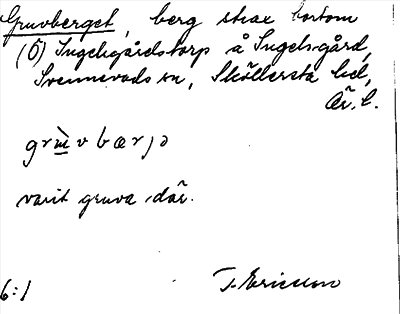 Gruvberget, berg strax bortom
(Ö) Ingelsgårdstorp å Ingelsgård,
Svennevads sn, Sköllersta hd,
Ör. l.
varit gruva där.
6:1 T. Ericsson